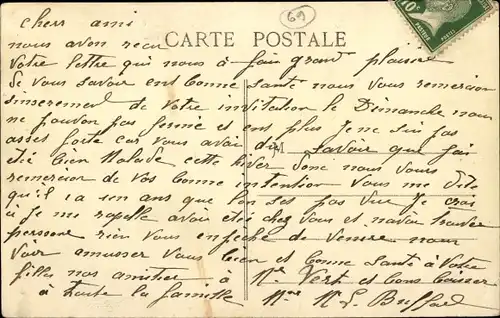 69
10c
CARTE POSTALE
chers ami
nous avon recu
votre lettre qui nous à fair grant plaisire
de vous savoir ent bonne santé nous vous remersion
sinseremen de votre invitation le Dimanche nous
ne pouvon pas fermé et en plus Je ne sui pas
asset forte car vous avai du savoir que j'ai
été bien malade cette hiver donc nous vous
remersion de vos bonne intention vous me dite
qu'il i a un ans que l'on ses pas vue Je crois
à je me rapelle avoir eté chez vous et n'avoir trouver
personne rien vous enpeche de venire nous
voir amusser vous bien et bonne santé à votre
filles nos amitier à Mr Vert et bons baisser
à toute la famille Mme M L Buffard